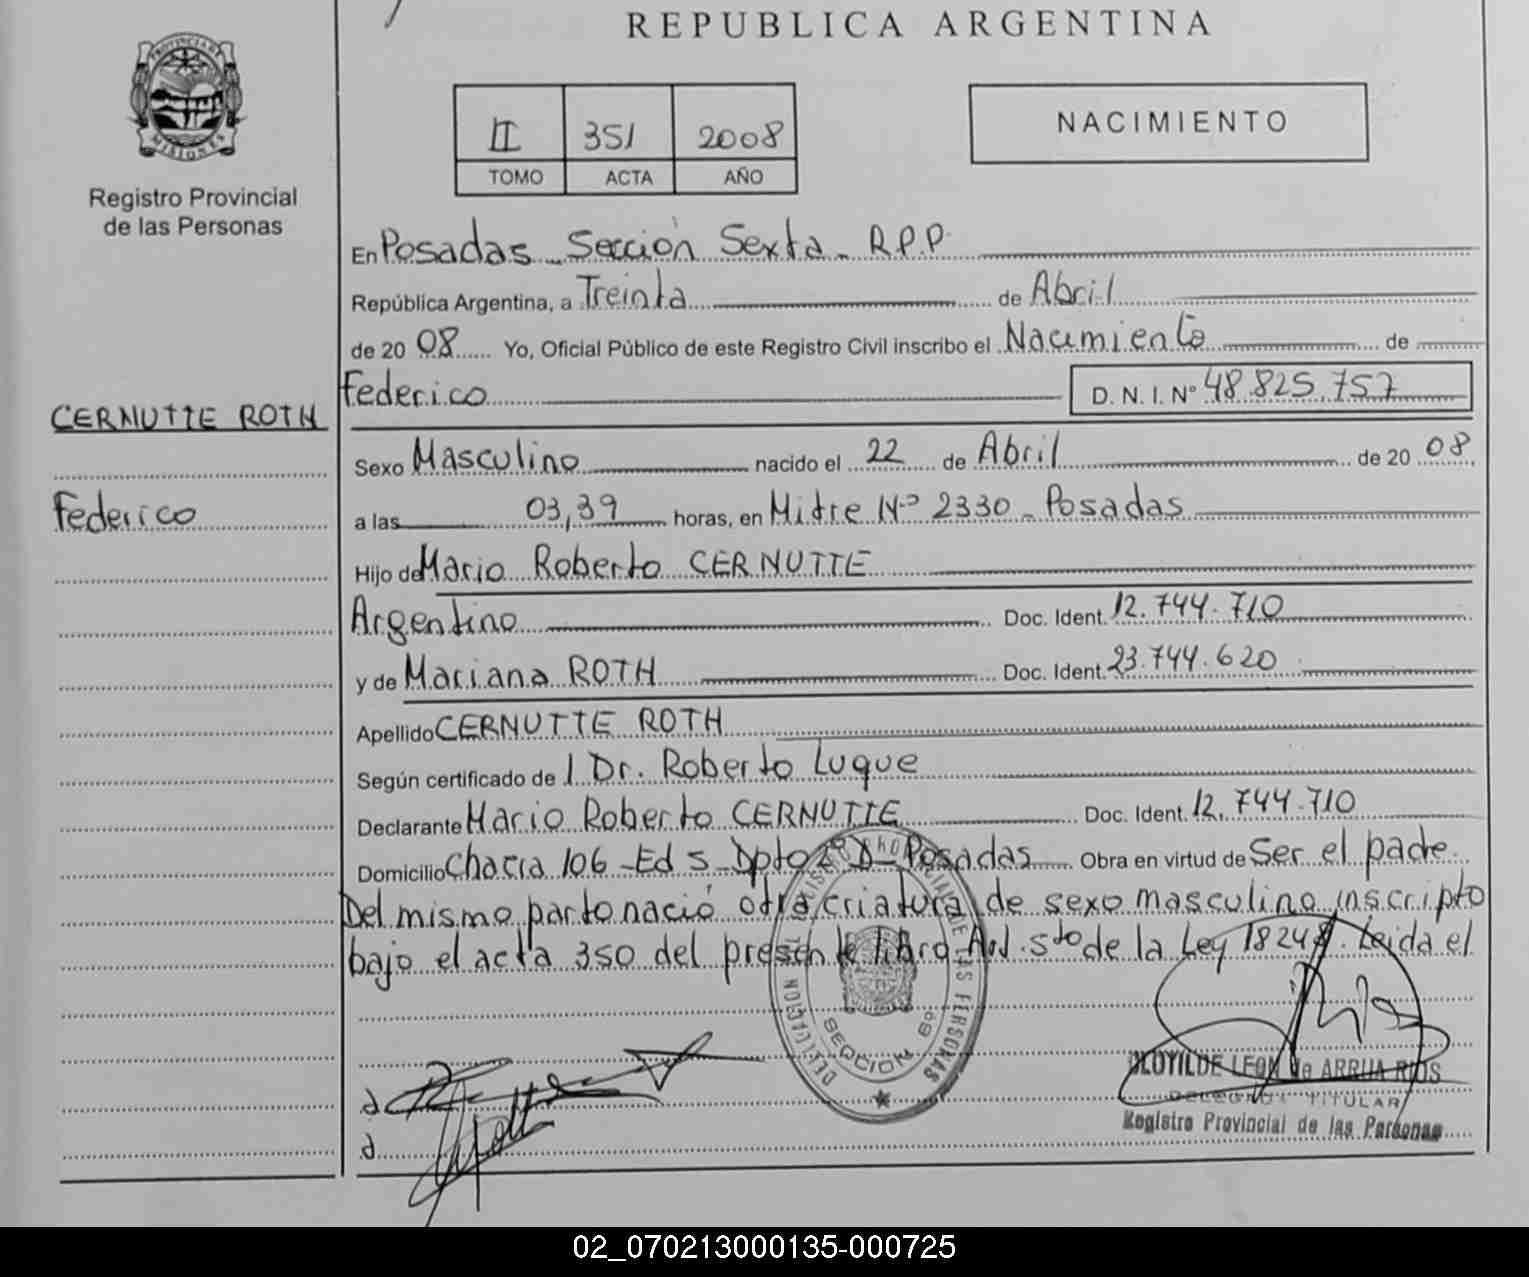 REPUBLICA ARGENTINA
PROVINCIA DE
MISIONES
Registro Provincial
de las Personas
II 351 2008
TOMO ACTA AÑO
NACIMIENTO
En Posadas Sección Sexta - R.P.P.
República Argentina, a Treinta de Abril
de 20 08 Yo, Oficial Público de este Registro Civil inscribo el Nacimiento de
Federico D. N. I. Nº 48.825.757
CERNUTTE ROTH
Federico
Sexo Masculino nacido el 22 de Abril de 20 08
a las 03,39 horas, en Mitre Nº 2330 - Posadas
Hijo de Mario Roberto CERNUTTE
Argentino Doc. Ident. 12.744.710
y de Mariana ROTH Doc. Ident. 23.744.620
Apellido CERNUTTE ROTH
Según certificado de l Dr. Roberto Luque
Declarante Mario Roberto CERNUTTE Doc. Ident. 12.744.710
Domicilio Chacra 106 - Ed 5 - Dpto 2º D - Posadas Obra en virtud de Ser el padre.
Del mismo parto nació otra criatura de sexo masculino inscripto
bajo el acta 350 del presente libro Art. 5to de la Ley 18248. Leida el
DELEGACION REGISTRO PROVINCIAL DE LAS PERSONAS
SECCION 6º
CLOTILDE LEON de ARRUA RIOS
DELEGADA TITULAR
Registro Provincial de las Personas
02_070213000135-000725